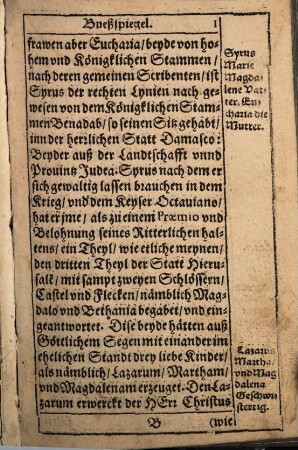 Bueßspiegel. 1
frawen aber Eucharia/ beyde von ho-
hem vnd Königklichen Stammen/
nach deren gemeinen Scribenten/ ist
Syrus der rechten Lynien nach ge-
wesen von dem Königklichen Stam-
men Benadab/ so seinen Sitz gehåbt/
inn der herzlichen Statt Damasco:
Beyder auß der Landtschafft vnnd
Prouintz Judea. Syrus nach dem er
sich gewaltig lassen brauchen in dem
Krieg/ vnd dem Keyser Octauiano/
hat er jme/ als zu einem Præmio vnd
Belohnung seines Ritterlichen hal-
tens/ ein Theyl/ wie etliche meynen/
den dritten Theyl der Statt Hieru-
salē/ mit sampt zweyen Schlössern/
Castel vnd Flecken/ nåmblich Mag-
dalo vnd Bethania begabet/ vnd ein-
geantwortet. Dise beyde håtten auß
Göttlichem Segen mit einander im
ehelichen Standt drey liebe Kinder/
als nåmblich/ Lazarum/ Martham/
vnd Magdalenam erzeuget. Den La-
zarum erwerckt der HErr Christus
B (wie
Syrus
Marie
Magda-
lene Vat-
ter. Eu-
charia die
Mutter.
Lazarus
Martha/
vnd Mag
dalena
Geschwi-
stertig.